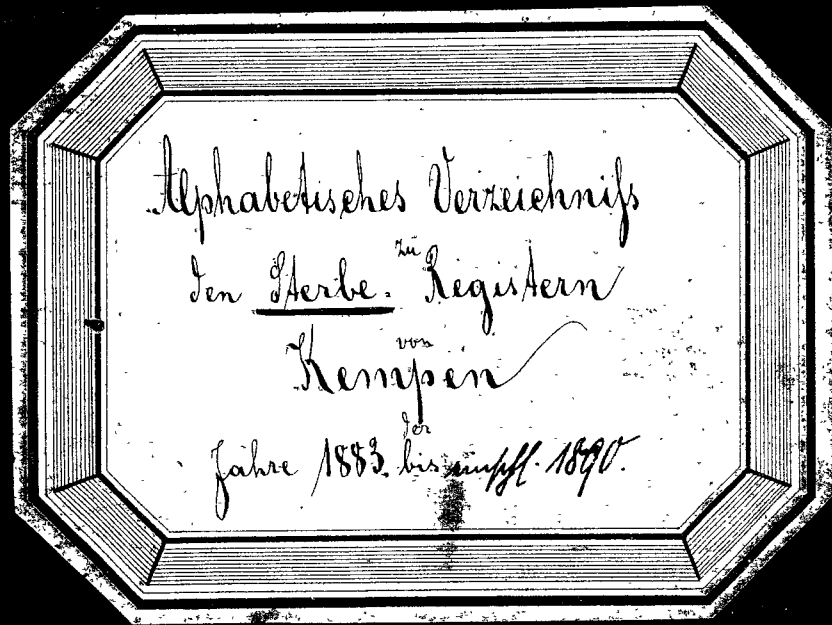 Alphabetisches Verzeichniß
zu
den Sterbe- Registern
von
Kempen
der
Jahre 1883. bis einschl. 1890.